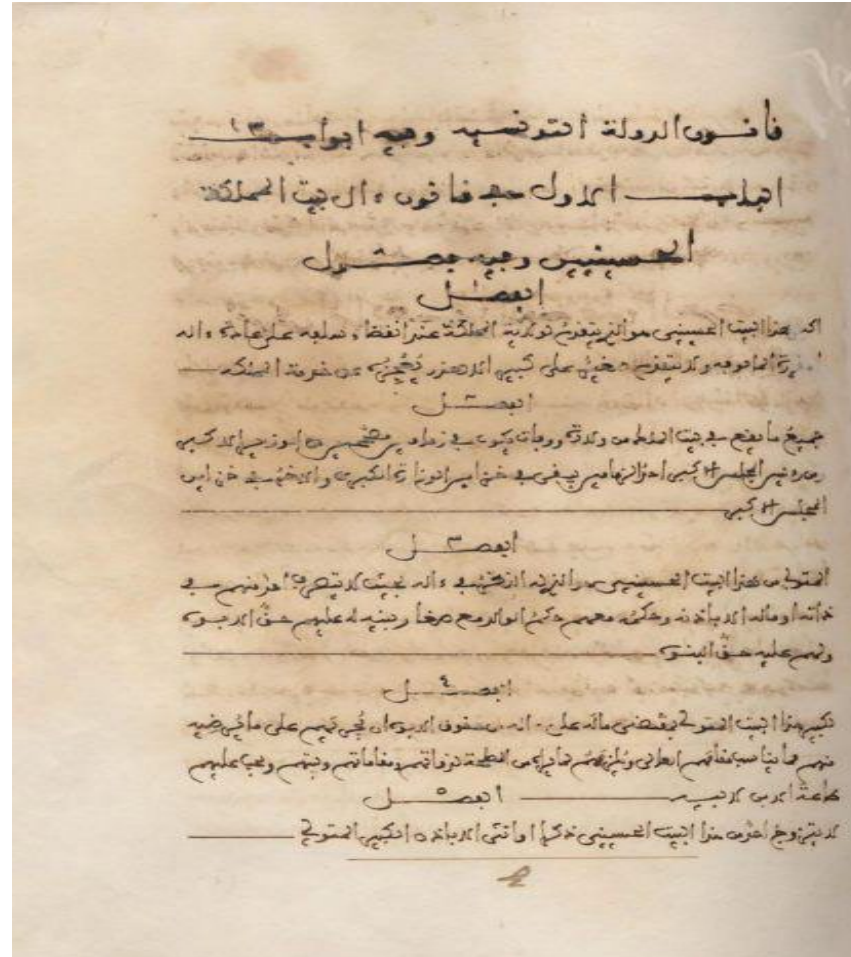 قانون الدولة التونسية وفيه ابواب ١٣
الباب الاول في قانون ءال بيت المملكة
الحسينيين وفيه فصول
الفصل ١
اكبر هذا البيت الحسيني هو الذي يتقدم لولاية المملكة عند انقضاء سلفه على عادة ءاله
ولا يتقدم صغير على كبير الا لعذر يعجزه عن خدمة المملكة
الفصل ٢
جميع ما يقع في بيت الملك من ولادة ووفات يكون في زمام من الوزير الاكبر
المجلس الاكبر احد الزمامين يبقى في خزاين الوزارة الكبرى والاخر في خزاين
المجلس الاكبر
الفصل ٣
المتولي من هذا البيت الحسيني له النظر في ءاله بحيث لا يتصرف احد منهم في
ذاته او ماله الا باذنه وحكمه معهم حكم الوالد مع صغار بنيه له عليهم حق الابوة
ولهم عليه حق البنوة
الفصل ٤
كبير هذا البيت المتولي بمقتضى ماله على ءاله من حقوق الابوة ان يجري لهم على ما في
منهم ما يناسب مقامهم العالي من المصلحة لذواتهم ومقاماتهم وبيتهم ويجب عليهم
طاعة الاب لابنيه الفصل ٥
لا يتزوج احد من هذا البيت الحسيني ذكرا او انثى الا باذن الكبير المتولي